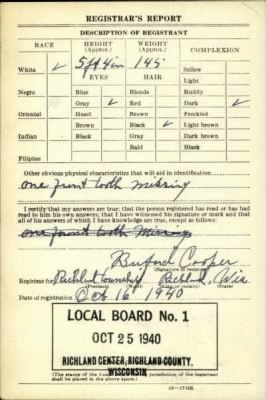 REGISTRAR'S REPORT
DESCRIPTION OF REGISTRANT
RACE HEIGHT (Approx.) WEIGHT (Approx.) COMPLEXION
White ✓ 5 ft 4 in 145 Sallow
EYES HAIR Light
Negro Blue Blonde Ruddy
Gray ✓ Red Dark ✓
Oriental Hazel Brown Freckled
Brown Black ✓ Light brown
Indian Black Gray Dark brown
Bald Black
Filipino
Other obvious physical characteristics that will aid in identification
one front tooth missing
I certify that my answers are true; that the person registered has read or has had
read to him his own answers; that I have witnessed his signature or mark and that
all of his answers of which I have knowledge are true, except as follows:
one front tooth missing
Buford Cooper
(Signature of registrar)
Registrar for Richland Township Richland, Wis.
Date of registration Oct 16 1940
LOCAL BOARD No. 1
OCT 25 1940
RICHLAND CENTER, RICHLAND COUNTY.
WISCONSIN
(The stamp of the Local Board having jurisdiction of the registrant
shall be placed in the above space.)
16—17105